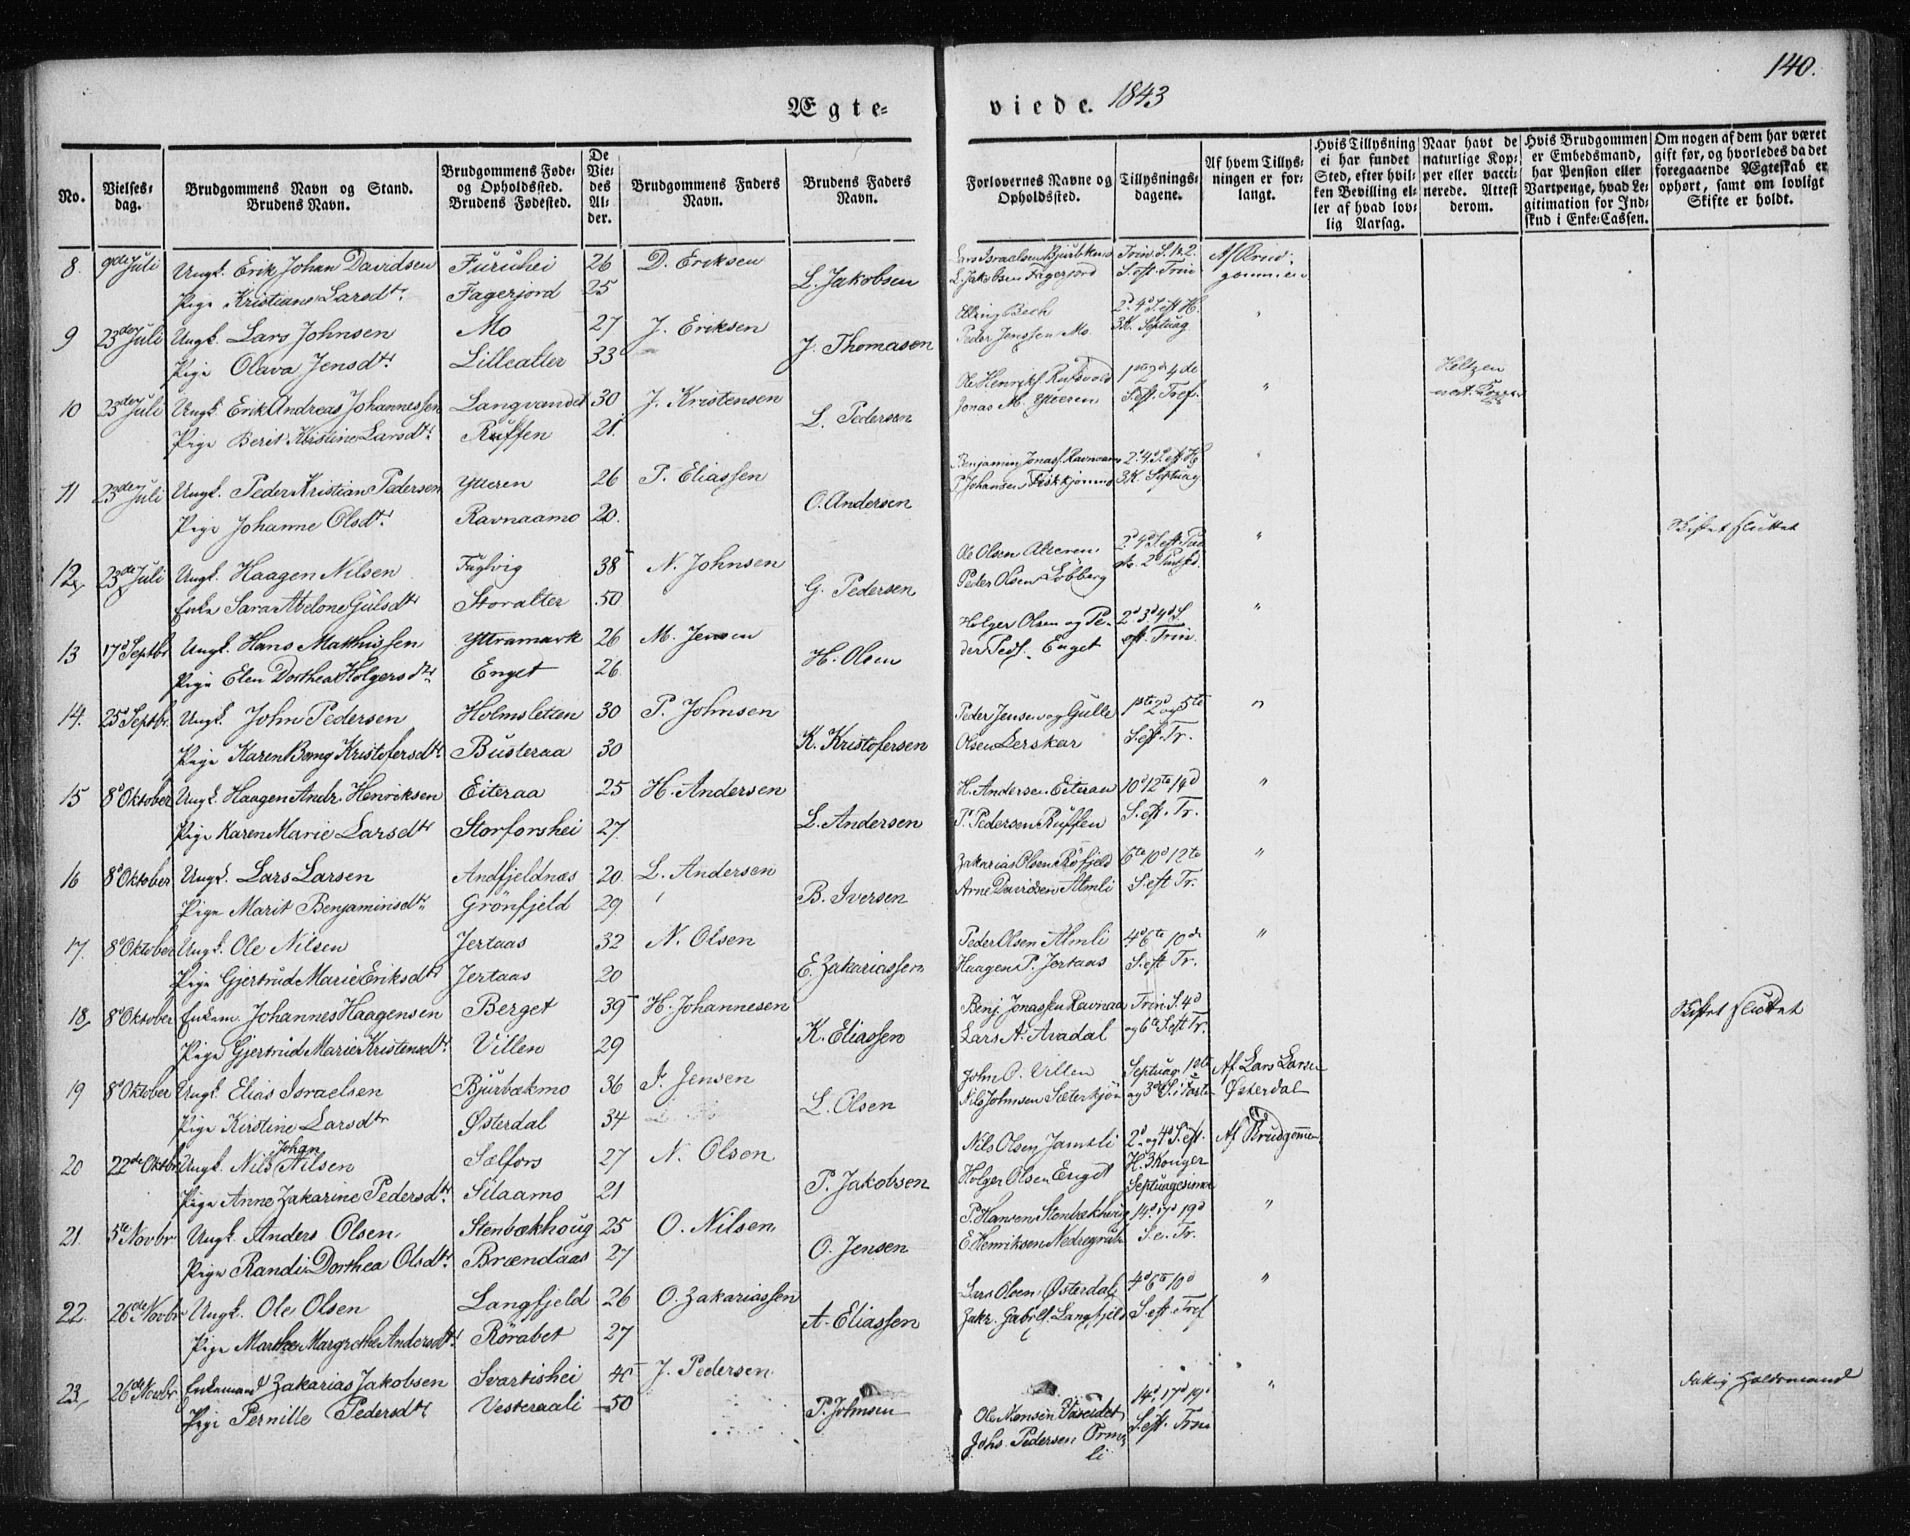 140.
Ægte- viede. 1843
No.
Vielses-dag.
Brudgommens Navn og Stand. Brudens Navn.
Brudgommens Føde- og Opholdssted. Brudens Fødested.
De Viedes Alder.
Brudgommens Faders Navn.
Brudens Faders Navn.
Forlovernes Navne og Opholdssted.
Tillysnings-dagene.
Af hvem Tillysningen er forlangt.
Hvis Tillysning ei har fundet Sted, efter hvilken Bevilling eller af hvad lovlig Aarsag.
Naar havt de naturlige Kopper eller vaccinerede. Attest derom.
Hvis Brudgommen er Embedsmand, har Pension eller Vartpenge, hvad Legitimation for Indskud i Enke-Cassen.
Om nogen af dem har været gift før, og hvorledes da det foregaaende Ægteskab er ophørt, samt om lovligt Skifte er holdt.
8. 9de Juli Ungk. Erik Johan Davidsen Furuhei 26 D. Eriksen Lars Israelsen Trin. S. 1. 2. Af Brud-
Pige Kristiane Larsdtr Fagerjord 25 L. Jakobsen L. Jakobsen Fagerjord S. eft. Trin gommen
9 23de Juli Ungk. Lars Johnsen Mo 27 J. Eriksen Elling Bech 2d 4d S. eft H. "
Pige Olava Jensdtr Lillealter 33 J. Thomasen Peder Jenssen Mo 3K. Septuag
10 23de Juli Ungk. Erik Andreas Johannessen Langvandet 30 J. Kristensen Ole Henriks. 1ste 2d 4de "
Pige Berit Kristine Larsdtr Ruffen 21 L. Pedersen Jonas M. Ytteren S. eft. Tref.
11 23de Juli Ungk. Peder Kristian Pedersen Ytteren 26 P. Eliassen Benjamin Jonass. Ravnaamo 2d 4d S. eft H "
Pige Johanne Olsdtr Ravnaamo 20. O. Andersen P. Johansen 3K. Septuag
12 23de Juli Ungk. Haagen Nilsen Fuglvig 38 N. Johnsen Ole Olsen Alteren 2d 4d S. eft. " Skiftet sluttet
Enke Sara Abelone Gulsdtr Storalter 50 G. Pedersen Peder Olsen Löbberg
13 17d Septbr Ungk. Hans Mathissen Yttramark 26 M. Jensen Holger Olsen og Pe- 2d 3d 4d S "
Pige Elen Dorthea Holgersdtr Enget 26 H. Olsen der Peds. Enget eft. Trin.
14. 25 Septbr. Ungk. John Pedersen Holmsletten 30 P. Johnsen Peder Jensen og Gulle 1ste 2d og 5te "
Pige Karen Bang Kristofersdtr Busteraa 30 K. Kristofersen Olsen Lerskar S. eft. Tr.
15 8d Oktober Ungk. Haagen Andr. Henriksen Eiteraa 25 H. Andersen H. Andersen Eiteraa 10d 12te 14d "
Pige Karen Marie Larsdtr Storforshei 27. L. Andersen P. Pedersen Ruffen S. eft. Tr.
16 8d Oktober Ungk. Lars Larsen Andfjeldnæs 20 L. Andersen Zakarias Olsen Röfjeld 6te 10d 12te "
Pige Marit Benjaminsdtr Grönfjeld 29 B. Iversen Arne Davidsen Almli S. eft Tr.
17. 8d Oktober Ungk. Ole Nilsen Jertaas 32 N. Olsen Peder Olsen Almli 4d 6te 10de "
Pige Gjertrud Marie Eriksdtr Jertaas 20 E. Zakariassen Haagen P. Jertaas S. eft Tr.
18 8d Oktober Enkem. Johannes Haagensen Berget 39 H. Johannesen Benj. Jonassen Ravnaa Trin. S. 4d Skiftet sluttet
Pige Gjertrud Marie Kristensdtr Villen 29 K. Eliassen Lars A. Avadal og 6te S. eft Tr.
19 8d Oktober Ungk. Elias Israelsen Bjurbækmo 36 J. Jensen John O. Villen Septuag. Af Lars Larsen
Pige Kirstine Larsdtr Østerdal 34 L. Olsen Nils Johnsen og 3d S. i Faste Østerdal
20 22de Oktbr Ungk. Nils Johan Nilsen Sælfors 27 N. Olsen Nils Olsen Jamtli 2d og 4d S. eft. Af Brudgommen
H. 3 Konger
Pige Anne Zakarine Pedersdtr Silaamo 21 P. Jakobsen Holger Olsen Enget Septuagesima
21. 5te Novbr Ungk. Anders Olsen Stenbækhoug 25 O. Nilsen P. Hansen Stenbækhoug 14d 17d 19d "
Pige Randi Dorthea Olsdtr Brændaas 27 O. Jensen E. Henriksen S. e. Tr.
22. 26de Novbr Ungk. Ole Olsen Langfjeld 26 O. Zakariassen Lars Olsen Østerdal 4d 6te 10d "
Pige Marthe Margrethe Andersdtr Rörabet 27 A. Eliassen Zakr. Gabrils. Langfjeld S. eft. Tref
23. 26de Novbr Enkemand Zakarias Jakobsen Svartishei 45 J. Pedersen Ole Monsen 14d 17d 19d "
Pige Pernille Pedersdtr Vesteraali 50 P. Johnsen Johs. Pedersen Orme- S. eft. Trin
li